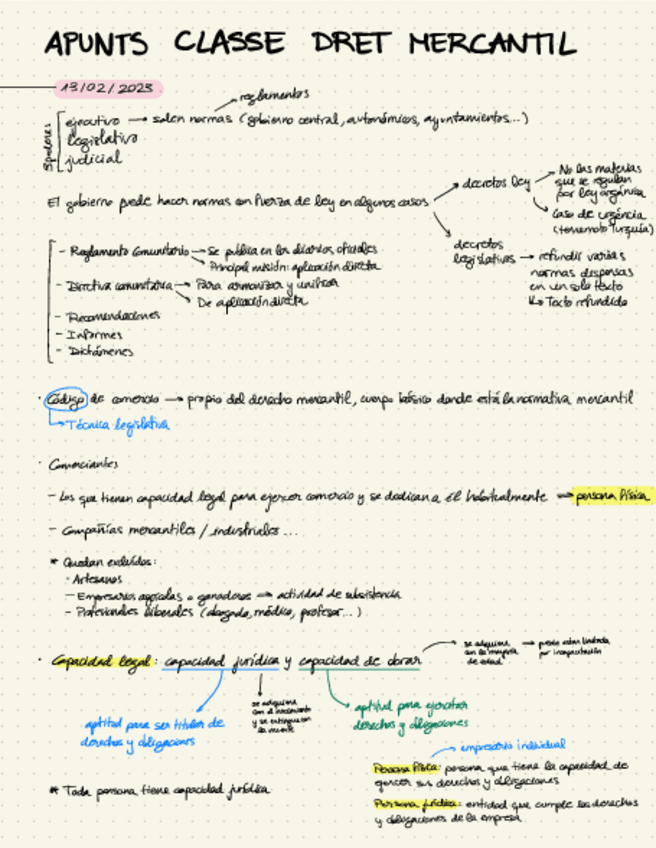 APUNTS CLASSE DRET MERCANTIL
13/02/2023
reglamentos
3 poderes
ejecutivo → salen normas (gobierno central, autonómicos, ayuntamientos...)
legislativo
judicial
El gobierno puede hacer normas con fuerza de ley en algunos casos
decretos ley
No las materias
que se regulan
por ley orgánica
Caso de urgéncia
(terremoto Turquía)
decretos
legislativos → refundir varias
normas dispersas
en un solo texto
↳ Texto refundido
- Reglamento comunitario → Se publica en los diarios oficiales
Principal misión: aplicación directa
- Directiva comunitaria → Para armonizar y unificar
De aplicación directa
- Recomendaciones
- Informes
- Dictámenes
· Código de comercio → propio del derecho mercantil, cuerpo básico donde está la normativa mercantil
↳ Técnica legislativa
· Comerciantes
- Los que tienen capacidad legal para ejercer comercio y se dedican a él habitualmente → persona física
- Compañías mercantiles / industriales...
* Quedan excluídos:
· Artesanos
- Empresarios agrícolas o ganaderos → actividad de subsistencia
- Profesionales liberales (abogado, médico, profesor...)
· Capacidad legal: capacidad jurídica y capacidad de obrar
se adquiere
con la mayoría
de edad
→ puede estar limitada
por incapacitación
se adquiere
con el nacimiento
y se extingue con
la muerte
aptitud para ser titular de
derechos y obligaciones
aptitud para ejercitar
derechos y obligaciones
empresario individual
Persona física: persona que tiene la capacidad de
ejercer sus derechos y obligaciones
* Toda persona tiene capacidad jurídica
Persona jurídica: entidad que cumple los derechos
y obligaciones de la empresa